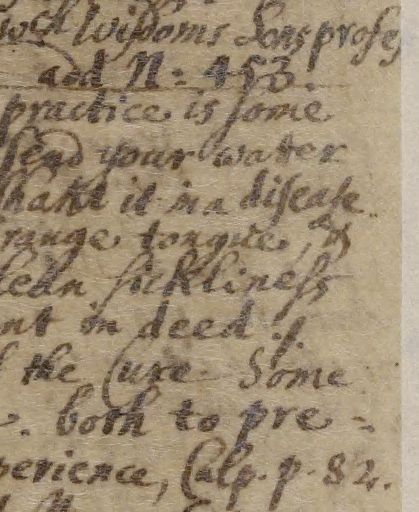 Wisdoms Sons profes
add N: 453.
practice is some
send your water
it in a disease
range tongue, as
lean sickliness
nt in deed /.
the Cure. Some
. both to pre-
perience, Calp. p. 82.